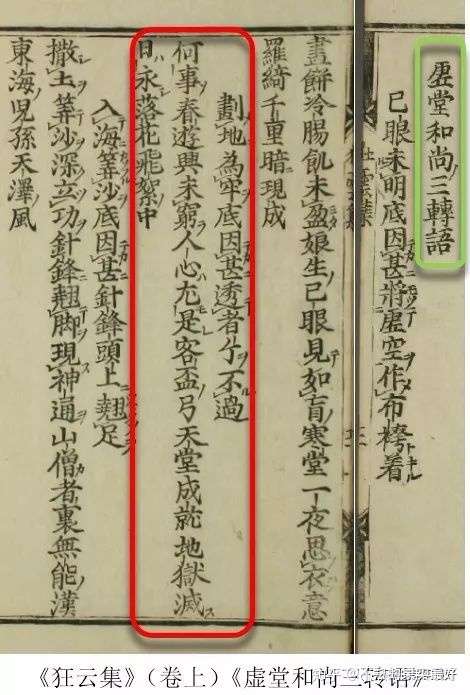 虗堂和尚三轉語
己眼未明底因甚將虛空作布袴着
畫餅冷腸飢未盈娘生己眼見如盲寒堂一夜思衣意
羅綺千重暗現成
劃地為牢底因甚透者亇不過
何事春遊興未窮人心尤是客盃弓天堂成就地獄滅
日永落花飛絮中
入海筭沙底因甚針鋒頭上翹足
撒土筭沙深立功針鋒翹脚現神通山僧者裏無能漢
東海兒孫天澤風
《狂云集》（卷上）《虚堂和尚三转语》